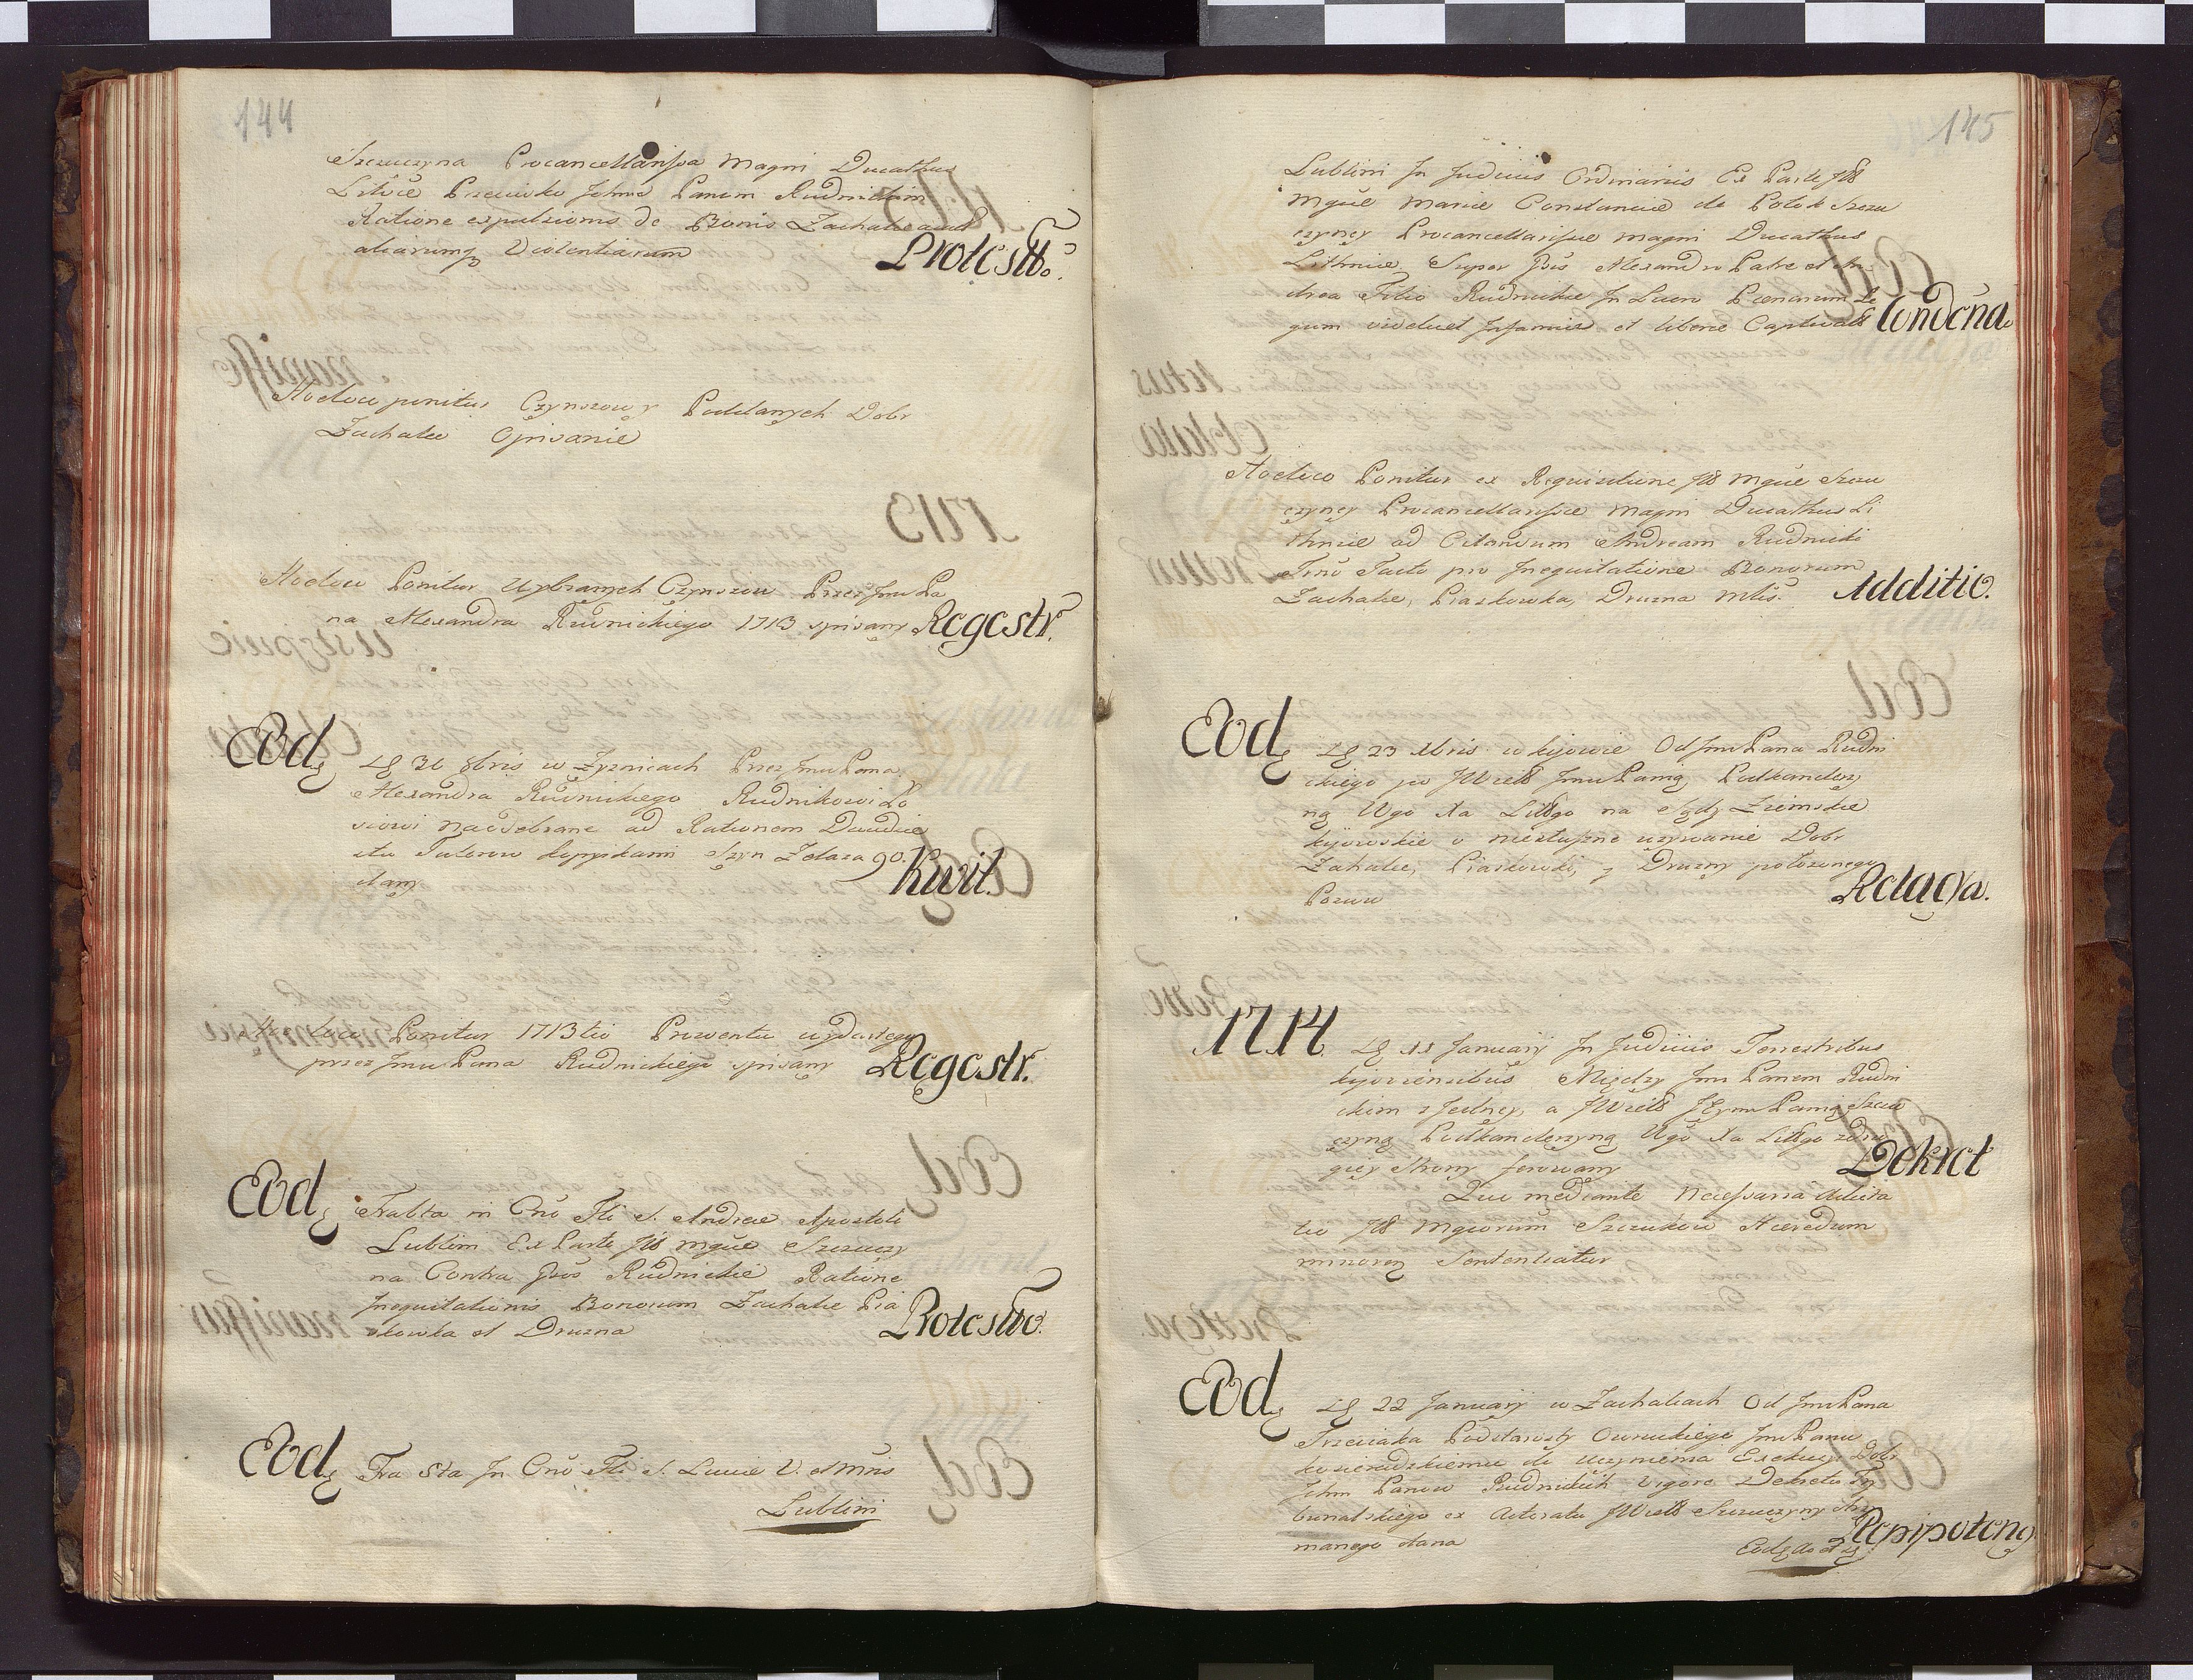 144
Szczuczyna Procancellarissa Magni Ducathus
Litvæ Przeciwko Jchmć Panom Rudnickim
Ratione expulsionis de Bonis Zachalce
aliarumq Violentiarum Protestto.
Hocloco ponitur Czynszow y Poddanych Dobr
Zachalec Opisanie
Hocloco Ponitur Wybranych Czynszow Przez Jmci Pa
na Alexandra Rudnickiego 1713 spisany Regestr.
Eodq 30 8bris w Zyznicach Przez Jmci Pana
Alexandra Rudnickiego Rudnikowi
na odebrane ad Rationem
Zelaza 90.
dany Kwit.
Hocloco Ponitur 1713tio Prowentu
przez Jmci Pana Rudnickiego spisany Regestr.
Eodq Frabta in Cnö Fti S. Andreæ Apostoli
Lublini Ex Parte Jll Mgæ Szczuczy
na Contra Rudnickie Ratione
Inequitationis Bonorum Zachalce Pia
skowka et Druzna Protestto.
Eodq Fra 5ta Jn Cnö Fti S. Luciæ V. et Mris
Lublini
145
Lublini Jn Judiciis Ordinariis Ex Parte Jll
Mgæ Mariæ Constanciæ de Potok Szczu
czyney Procancellarissæ Magni Ducathus
Lithniæ, Super Alexandro Patre et An
drea Filio Rudnickie Jn Lucro Pænarum Le
gum videlicet Jnfamiæ et liberæ Captivatt Condcna.
Hocloco Ponitur ex Requisitione Jll Mgæ Szczu
czyney Procancellarissæ Magni Ducathus Li
thniæ ad Citandum Andream Rudnicki
Facto pro Jnequitatione Bonorum
Zachalce, Piaskowka, Druzna Additio.
Eodq 23 Xbris w kijowie Od Jmci Pana Rudni
ckiego po JWielt Jmci Panią Podkanclerzy
ną Wgo Xa Littgo na Sądy Ziemskie
kijowskie o niesłuszne uzywanie Dobr
Zachalce, Piaskowki, y Druzny połozonego
Pozwu Relacya.
1714 XX January Jn Judiciis Terrestribus
kijoviensibus Między Jmci Panem Rudni
ckim z Jedney, a JWielt Jeymci Panią Szczu
czyną Podkanclerzyną Wgo Xa Littgo zdru
giey Strony ferowany Dekret
Quo mediante Necessaria
Jll Mgorum Szczukow Hæredum
minoren Sententiatur
Eodq 22 January w Zachalcach Od Jmci Pana
Trzeciaka Podstarosty Owruckiego Jmci Panu
do uczynienia Exekucyi Dobr
Jchm Panow Rudnickich vigore Dekretu Try
bunalskiego ex Actoratu JWielt Szczuczyny
manego dana Plenipotency